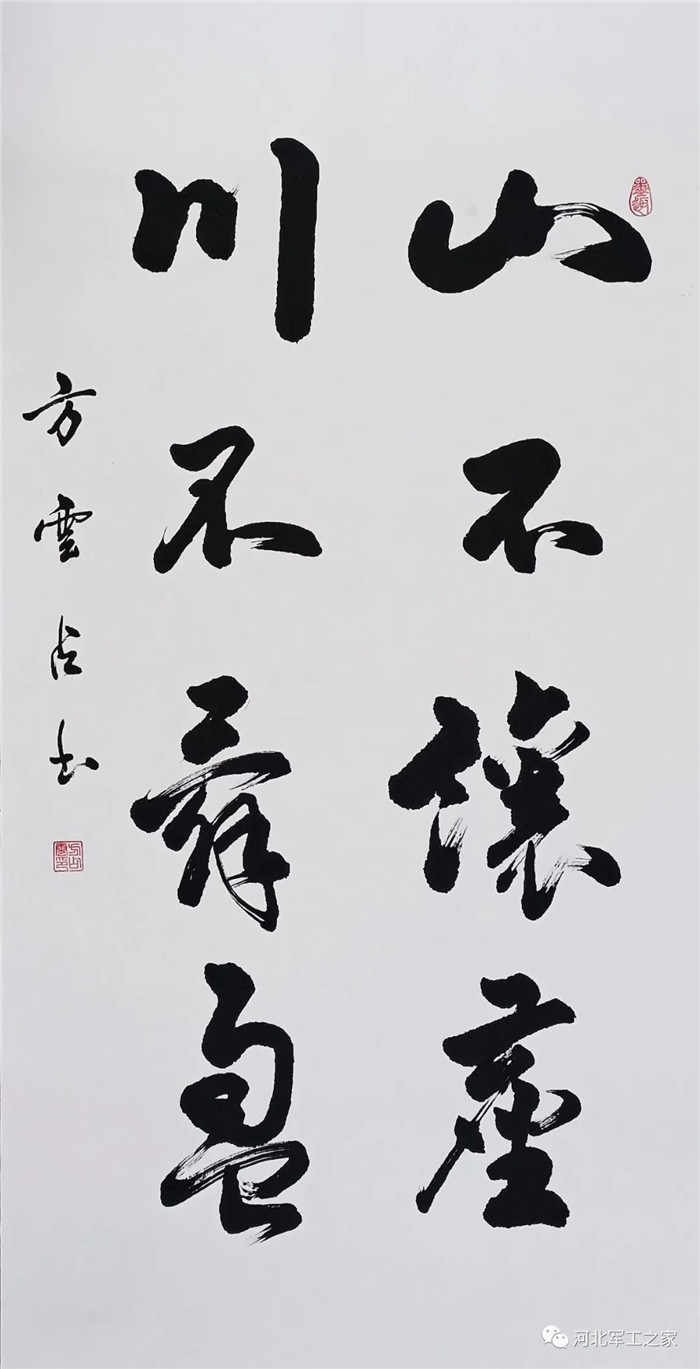 山不讓塵
川不辭盈
方雲占书
河北军工之家